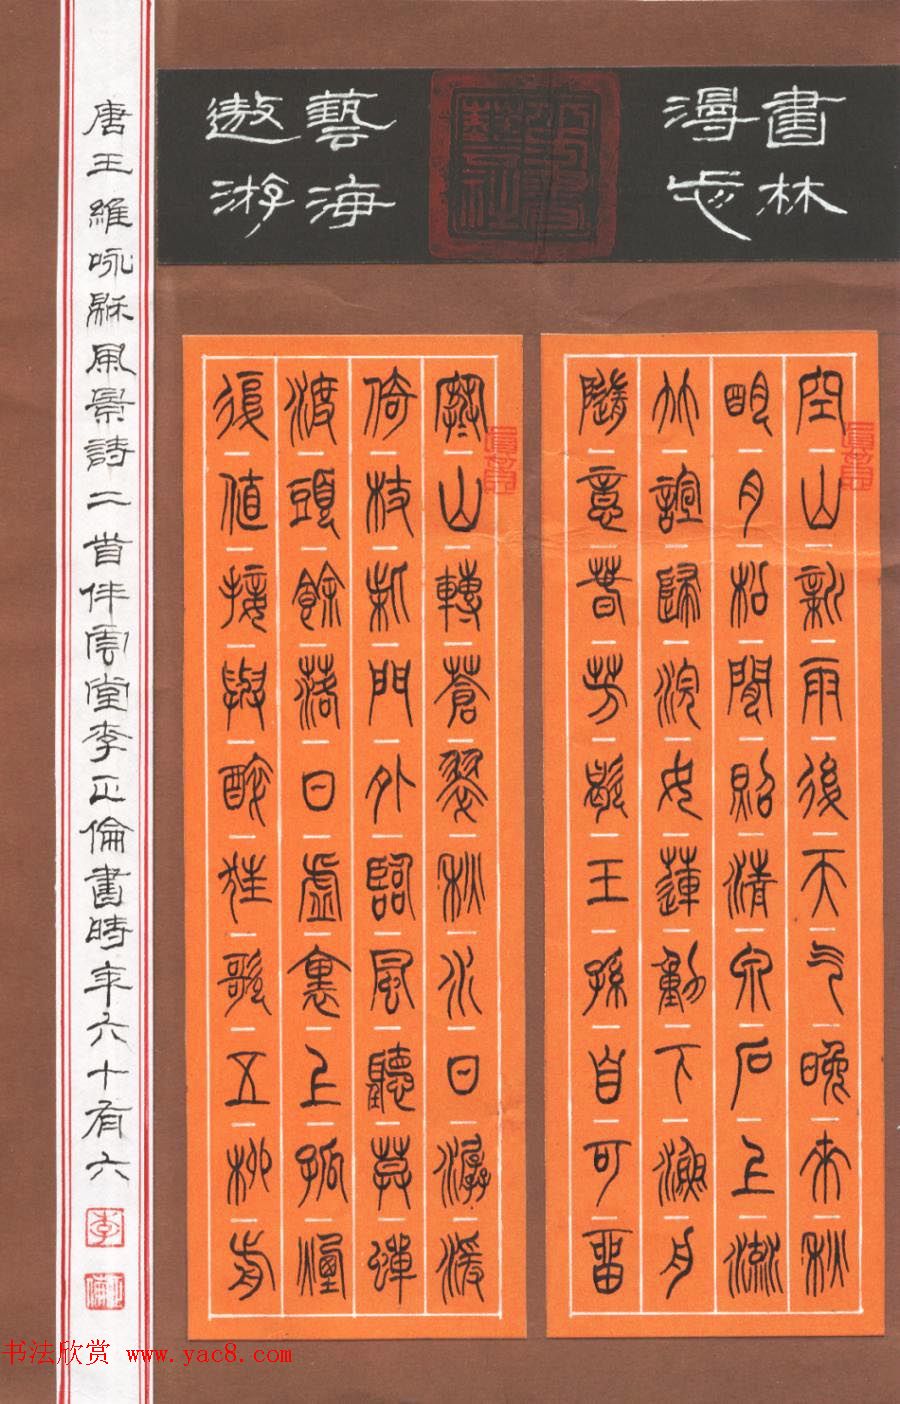 書林
漫步
藝海
遨游
空山新雨後天气晚來秋
明月松間照清泉石上流
竹諠歸浣女蓮動下漁舟
隨意春芳歇王孫自可留
寒山轉蒼翠秋水日潺湲
倚杖柴門外臨風聽莫蟬
渡頭餘落日虛裏上孤煙
復值接輿醉狂歌五柳前
唐王維咏風景詩二首伴雲堂李正倫書時年六十有六
李
书法欣赏 www.yac8.com